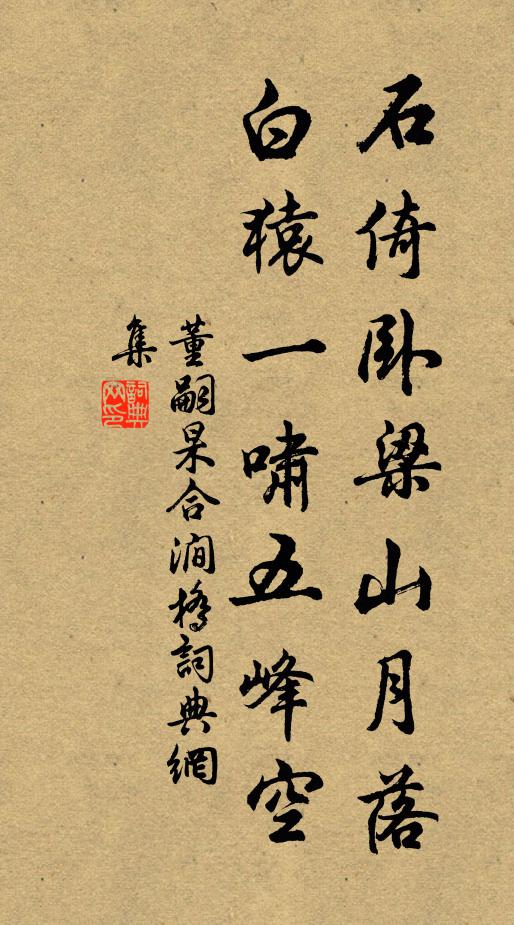 石倚卧梁山月落
白猿一嘯五峰空
董嗣杲合澗橋詞典網
集
詞典
网印